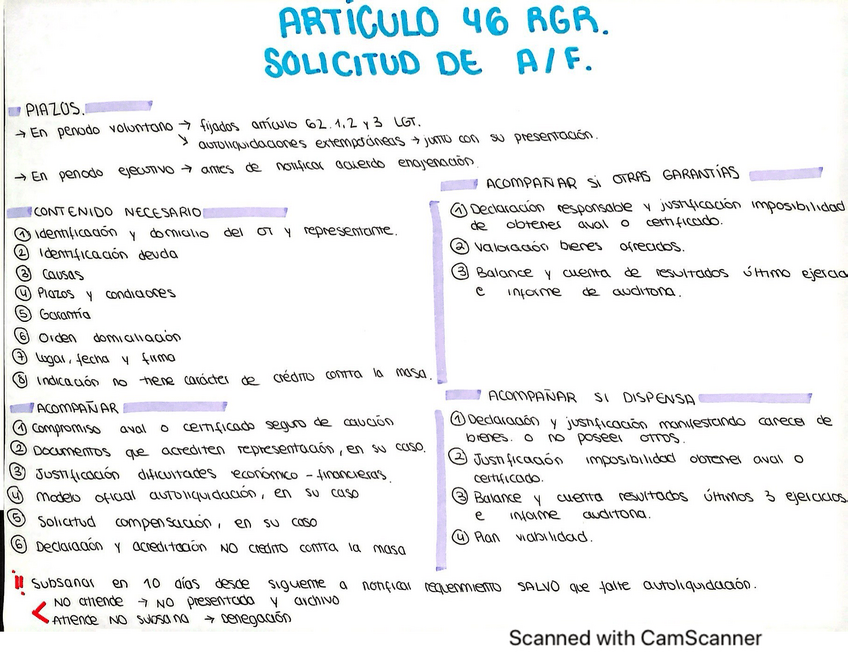 ARTÍCULO 46 RGR.
SOLICITUD DE A/F.
PLAZOS.
→ En periodo voluntario → fijados artículo 62.1,2 y 3 LGT.
↘ autoliquidaciones extemporáneas → junto con su presentación.
→ En periodo ejecutivo → antes de notificar acuerdo enajenación.
CONTENIDO NECESARIO
① Identificación y domicilio del OT y representante.
② Identificación deuda
③ Causas
④ Plazos y condiciones
⑤ Garantía
⑥ Orden domiciliación
⑦ Lugar, fecha y firma
⑧ Indicación no tiene carácter de crédito contra la masa.
ACOMPAÑAR
① Compromiso aval o certificado seguro de caución
② Documentos que acrediten representación, en su caso.
③ Justificación dificultades económico-financieras.
④ Modelo oficial autoliquidación, en su caso
⑤ Solicitud compensación, en su caso
⑥ Declaración y acreditación NO crédito contra la masa
ACOMPAÑAR SI OTRAS GARANTÍAS
① Declaración responsable y justificación imposibilidad
de obtener aval o certificado.
② Valoración bienes ofrecidos.
③ Balance y cuenta de resultados último ejercicio
e informe de auditoría.
ACOMPAÑAR SI DISPENSA
① Declaración y justificación manifestando carecer de
bienes. o no poseer otros.
② Justificación imposibilidad obtener aval o
certificado.
③ Balance y cuenta resultados últimos 3 ejercicios
e informe auditoría.
④ Plan viabilidad.
!! Subsanar en 10 días desde siguiente a notificar requerimiento SALVO que falte autoliquidación.
NO atiende → NO presentada y archivo
Atiende NO subsana → Denegación
Scanned with CamScanner